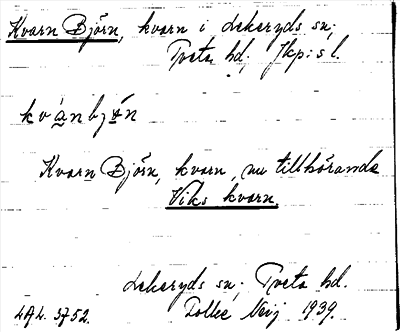 Kvarn Björn, kvarn i Lekeryds sn;
Tveta hd; Jkp:s l.
kvánbjǿn
Kvarn Björn, kvarn, nu tillhörande
Viks kvarn.
Lekeryds sn; Tveta hd.
1939.